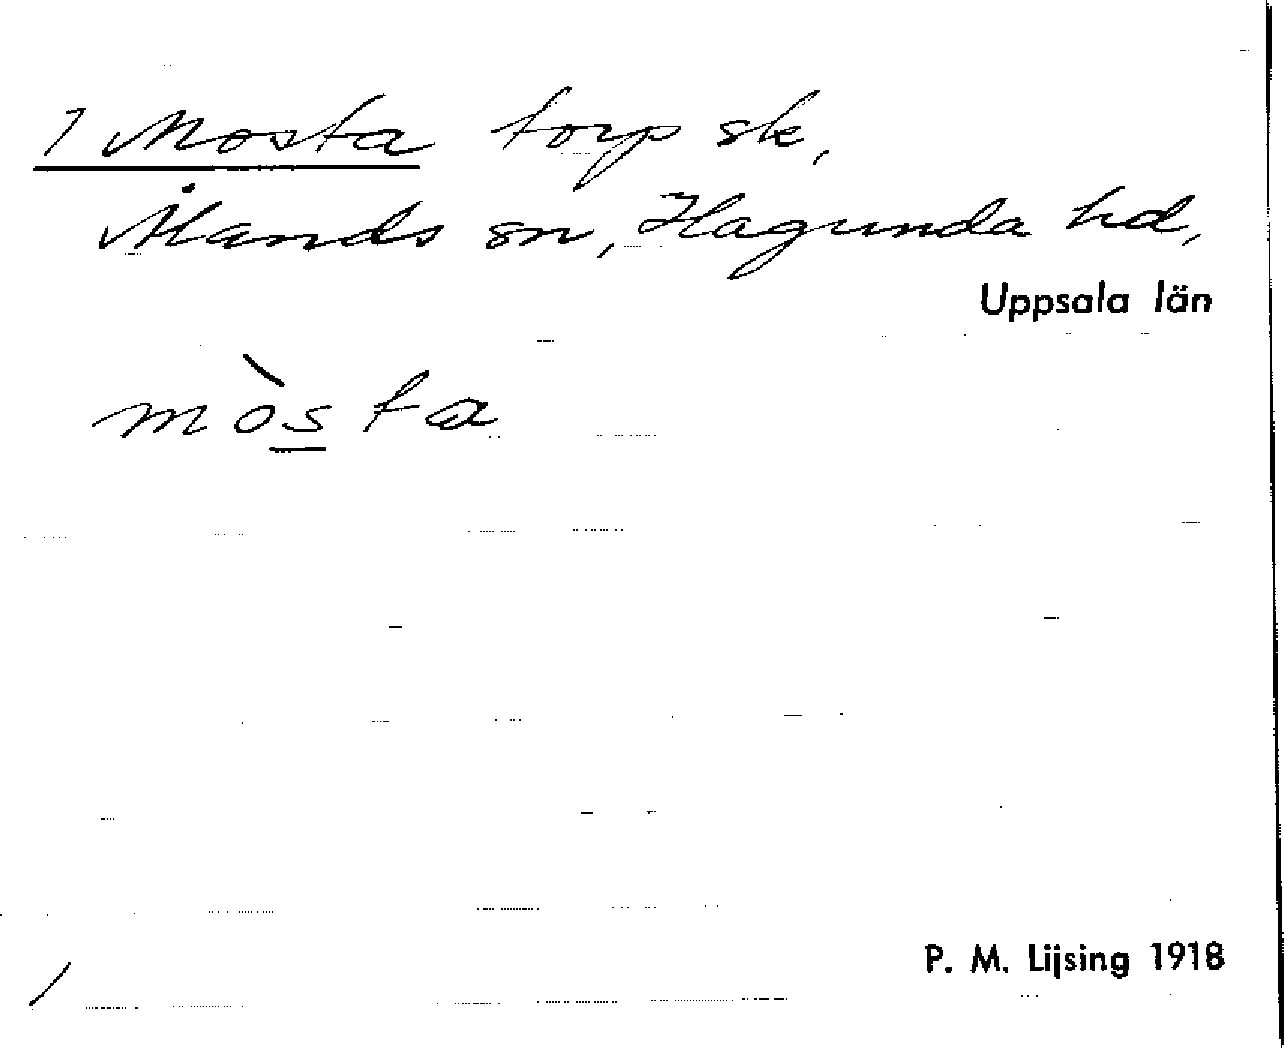 1 Mosta torp sk,
Ålands sn, Hagunda hd,
Uppsala län
mòsta
P. M. Lijsing 1918
/